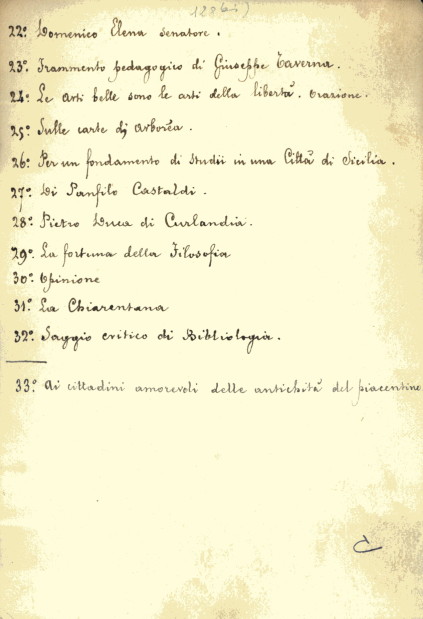 128bis)
22º. Domenico Elena senatore.
23º. Frammento pedagogico di Giuseppe Taverna.
24º. Le Arti belle sono le arti della libertà. Orazione.
25º. Sulle carte di Arborèa.
26º. Per un fondamento di Studii in una Città di Sicilia.
27º. Di Panfilo Castaldi.
28º. Pietro Duca di Curlandia.
29º. La fortuna della Filosofia
30º. Opinione
31º. La Chiarentana
32º. Saggio critico di Bibliologia.
33º. Ai cittadini amorevoli delle antichità del piacentino